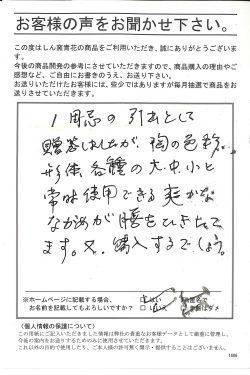 お客様の声をお聞かせ下さい。
この度はしん窯青花の商品をご利用いただき、誠にありがとうございます。
今後の商品開発の参考にさせていただきますので、商品購入の理由やご感想など、ご自由にお書きのうえ、お送り下さい。
お送りいただけたお客様には、些少ではありますが毎月抽選で商品をお送りさせていただきます。
1周忌の引出として
贈答しましたが、陶の色彩、
形体、各種の大、中、小と
常時使用できる
ながめが
ます。又、購入するでしょう。
※ホームページに記載する場合、 □はい □匿名で
お名前を記載してもよろしいですか？ □いいえ
〈個人情報の保護について〉
この用紙にご記入いただきました情報は弊社の貴重なお客様データとして厳重に管理し、
今後の案内をお送りするためのみに使用させていただきます。
これ以外の目的で使用したり、ご本人様の許可無く開示・提供することはございません。